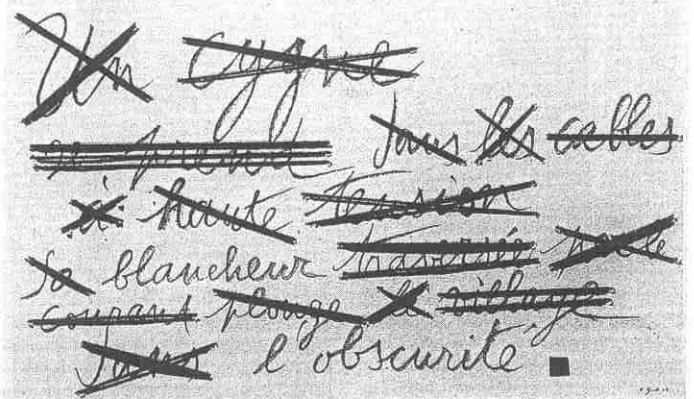 Un cygne
se prend dans les cables
à haute tension
sa blancheur traversée par le
courant plonge le village
dans l'obscurité